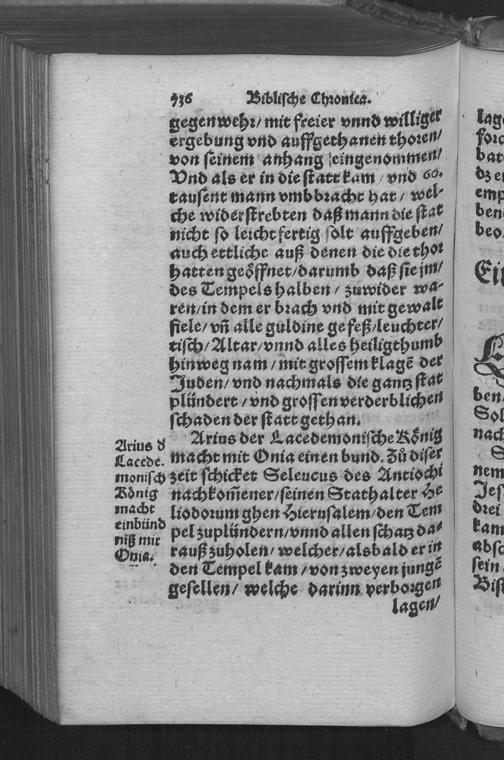 736 Biblische Chronica.
gegenwehr/ mit freier vnnd williger
ergebung vnd auffgethanen thoren/
von seinem anhang eingenommen/
Vnd als er in die statt kam / vnd 60.
tausent mann vmbbracht hat / wel-
che widerstrebten daß mann die stat
nicht so leichtfertig solt auffgeben/
auch ettliche auß denen die die thor
hatten geöffnet/ darumb daß sie jm/
des Tempels halben / zuwider wa-
ren/ in dem er brach vnd mit gewalt
fiele/ vñ alle guldine gefeß/ leuchter/
tisch/ Altar/ vnnd alles heiligthumb
hinweg nam / mit grossem klagẽ der
Juden/ vnd nachmals die gantz stat
plündert / vnd grossen verderblichen
schaden der statt gethan.
Arius der Lacedemonische König
macht mit Onia einen bund. Zů diser
zeit schicket Seleucus des Antiochi
nachkom̃ener/ seinen Stathalter He
liodorum ghen Hierusalem/ den Tem
pel zuplündern/ vnnd allen schatz da-
rauß zuholen/ welcher/ als bald er in
den Tempel kam / von zweyen jungẽ
gesellen/ welche darinn verborgen
lagen/
Arius d
Lacede-
monisch
König
macht
einbünd
niß mit
Onia.
lage
forc
bat
dz e
emp
ben
beo
Ei
ben
Sol
nach
S
nem
Jes
drei
kam
absc
sein
Bist